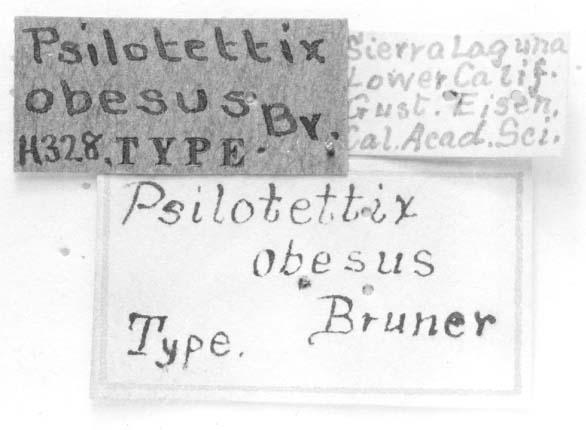 Psilotettix
obesus Br.
H328. TYPE.
Sierra Laguna
Lower Calif.
Gust. Eisen.
Cal. Acad. Sci.
Psilotettix
obesus
Bruner
Type.